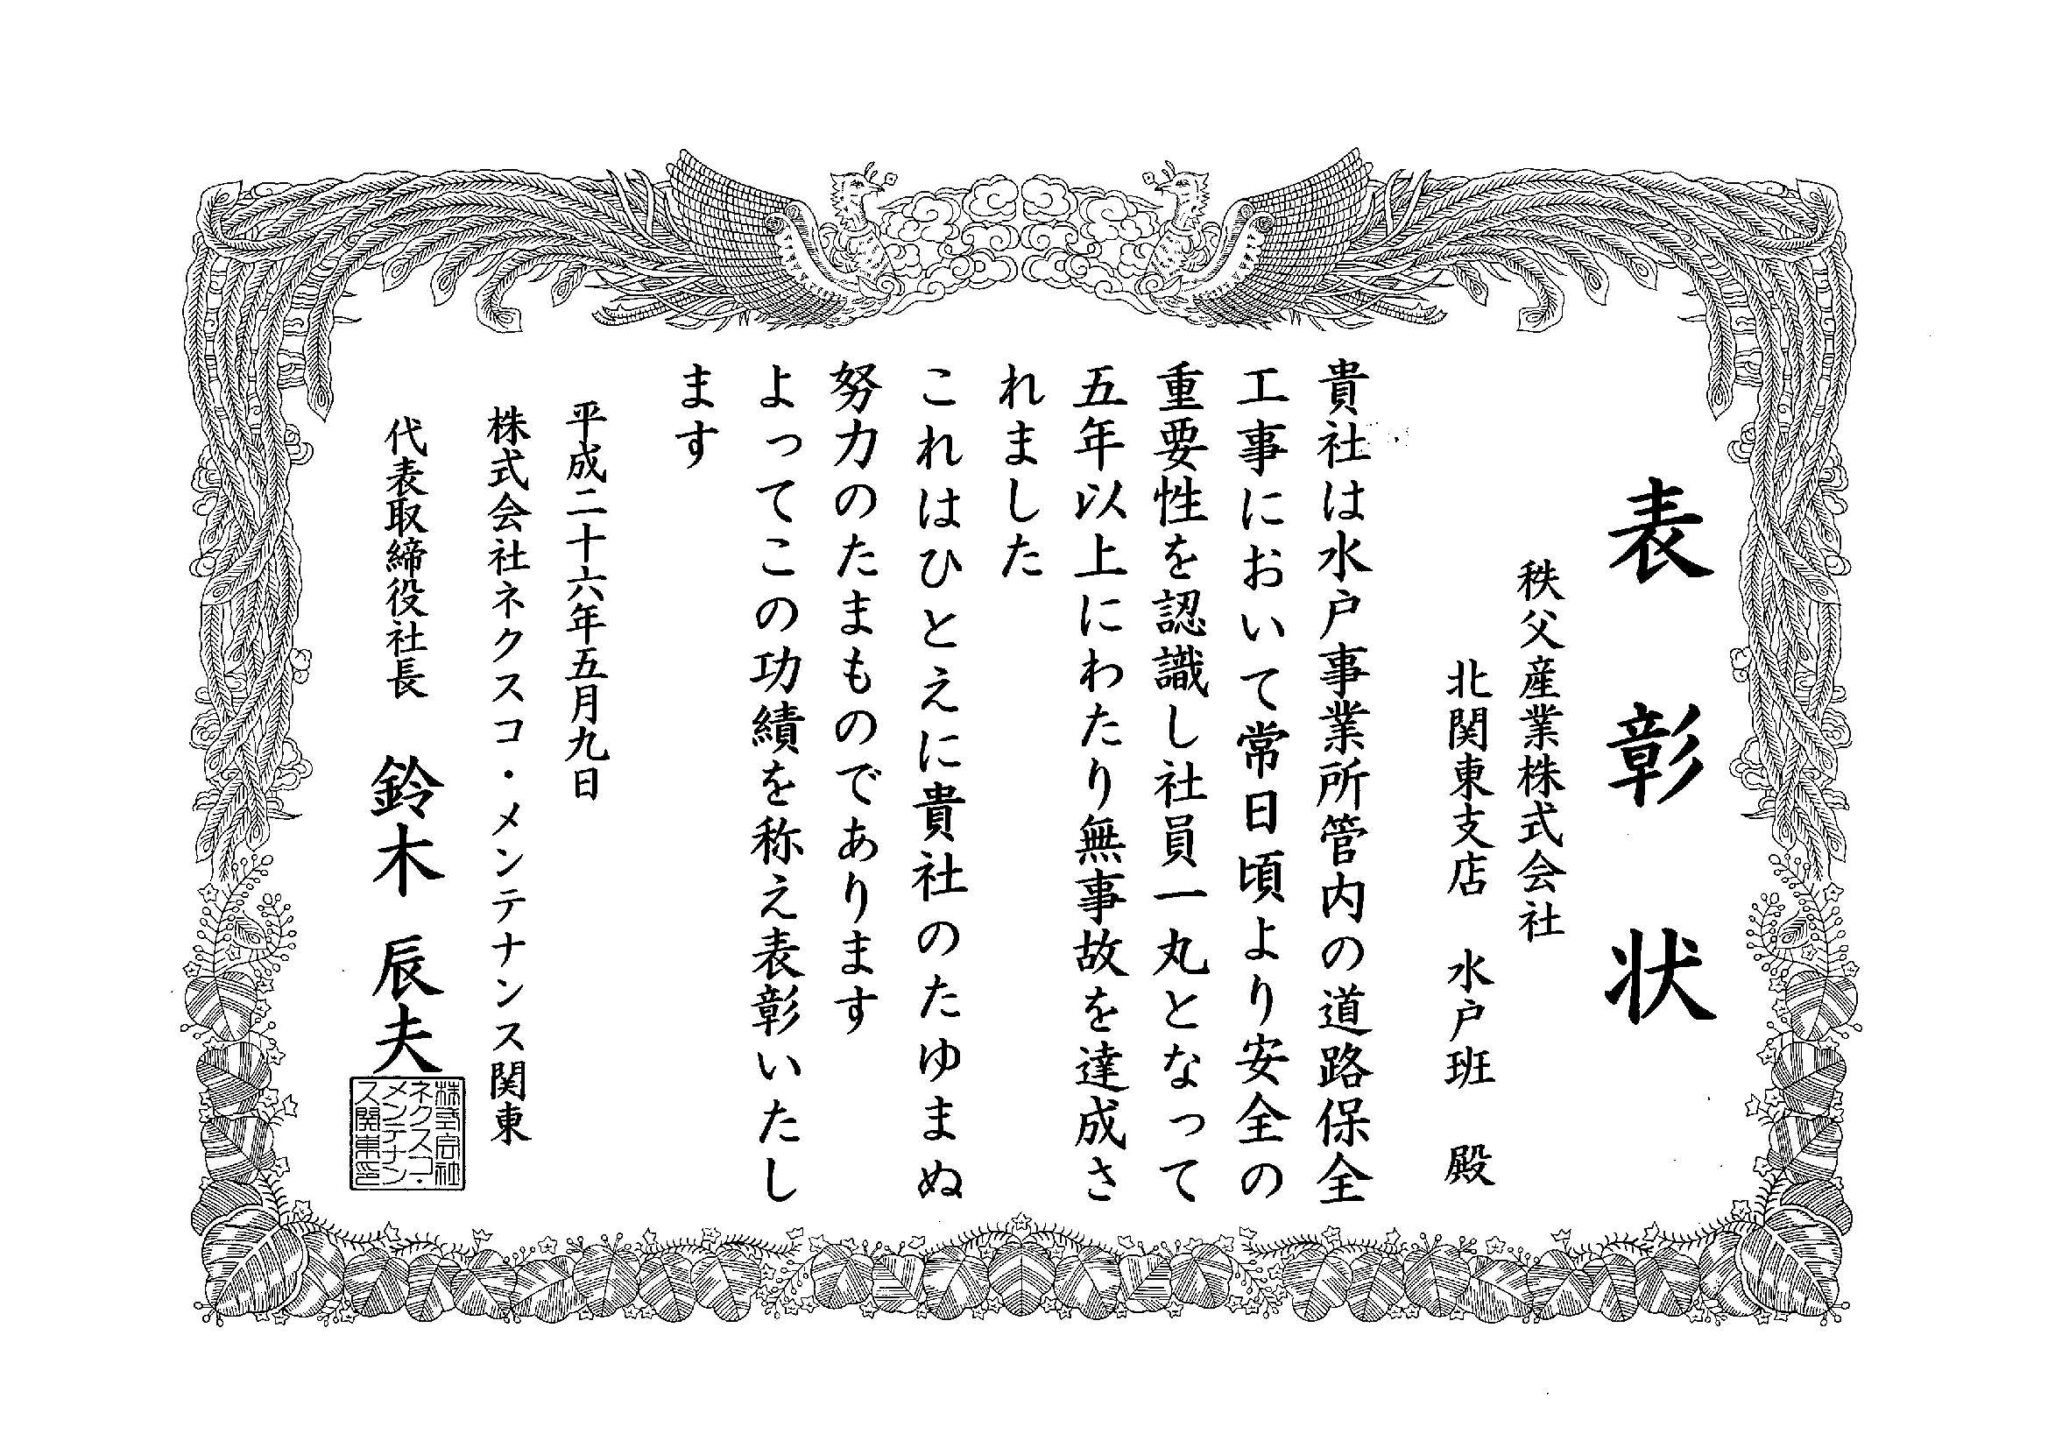 表彰状
秩父産業株式会社
北関東支店 水戸班 殿
貴社は水戸事業所管内の道路保全
工事において常日頃より安全の
重要性を認識し社員一丸となって
五年以上にわたり無事故を達成さ
れました
これはひとえに貴社のたゆまぬ
努力のたまものであります
よってこの功績を称え表彰いたし
ます
平成二十六年五月九日
株式会社ネクスコ・メンテナンス関東
代表取締役社長 鈴木辰夫
株式会社
ネクスコ・
メンテナン
ス関東印